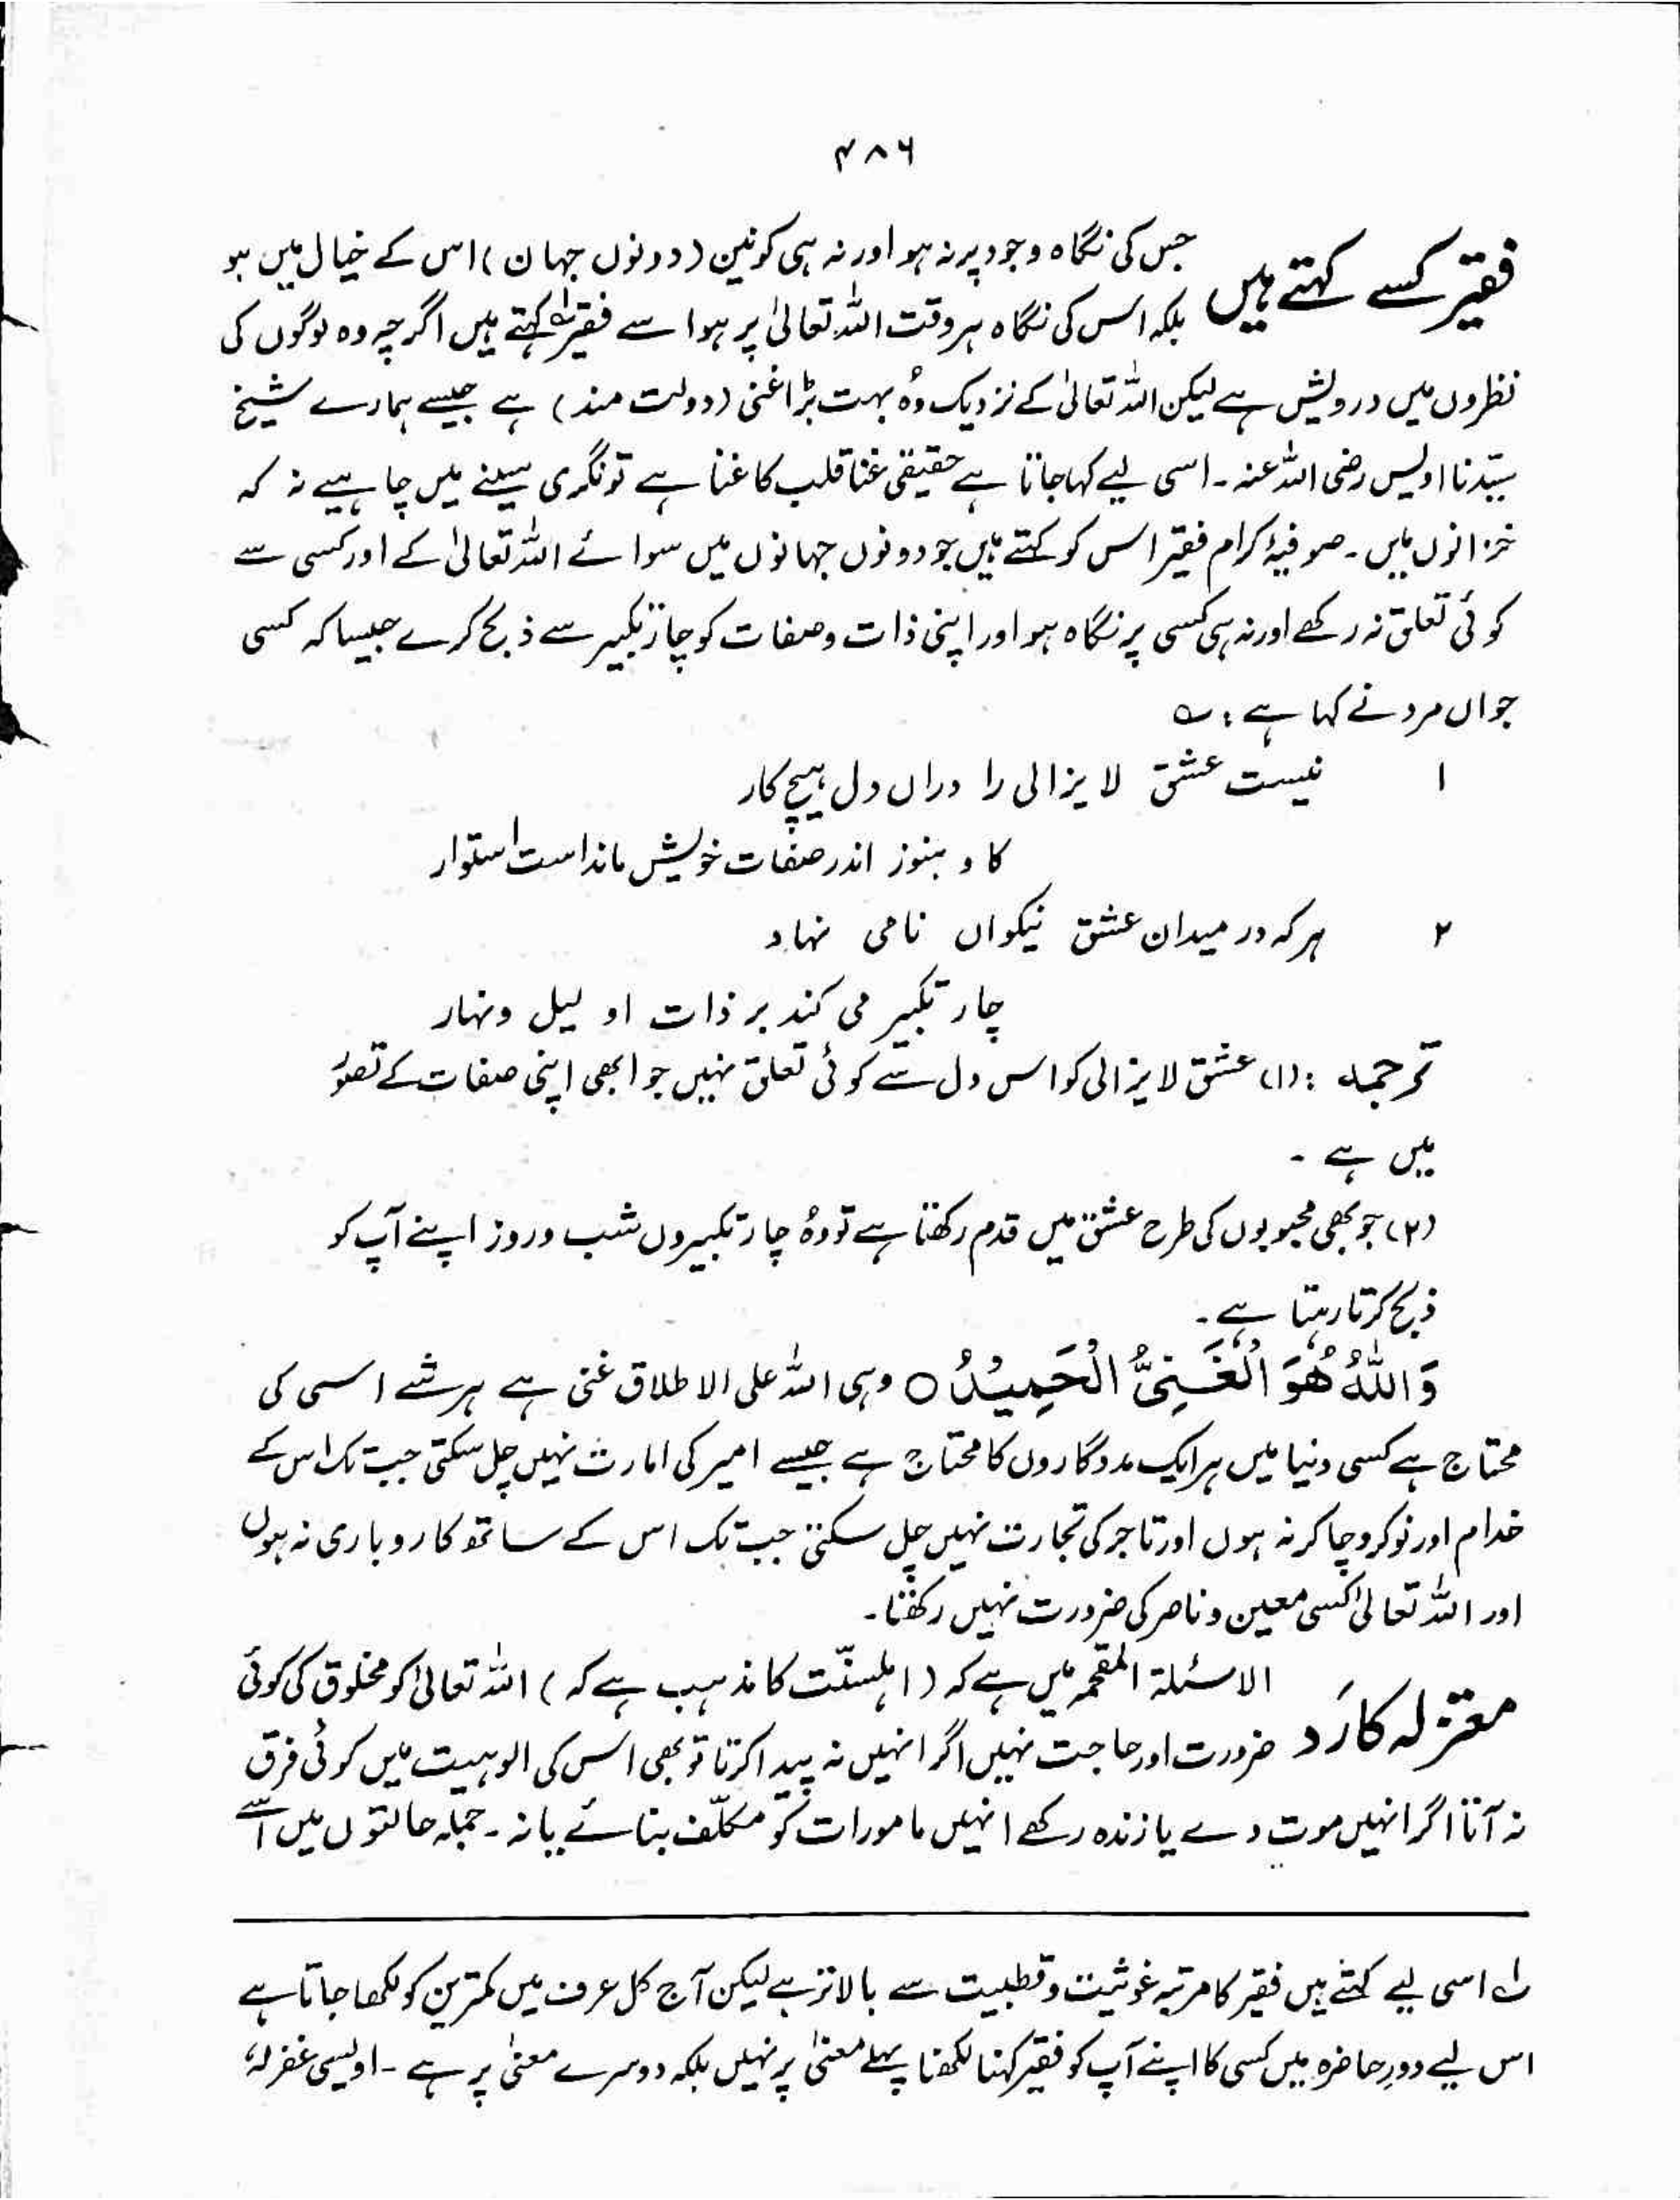 ۴۸۶
فقیر کسے کہتے ہیں
جس کی نگاہ وجود پر نہ ہو اور نہ ہی کونین (دونوں جہان) اس کے خیال میں ہو
بلکہ اس کی نگاہ ہر وقت اللہ تعالیٰ پر ہو اسے فقیر کہتے ہیں اگرچہ وہ لوگوں کی
نظروں میں درویش ہے لیکن اللہ تعالیٰ کے نزدیک وُہ بہت بڑا غنی (دولت مند) ہے جیسے ہمارے شیخ
سیّدنا اویس رضی اللہ عنہ۔ اسی لیے کہا جاتا ہے حقیقی غنا قلب کا غنا ہے تونگری سینے میں چاہیے نہ کہ
خزانوں میں۔ صوفیۂ کرام فقیر اس کو کہتے ہیں جو دونوں جہانوں میں سوائے اللہ تعالیٰ کے اور کسی سے
کوئی تعلق نہ رکھے اور نہ ہی کسی پر نگاہ ہو اور اپنی ذات و صفات کو چار تکبیر سے ذبح کرے جیسا کہ کسی
جواں مرد نے کہا ہے : ؎
۱ نیست عشق لا یزالی را دراں دل ہیچ کار
کا و ہنوز اندر صفات خویش ماند است استوار
۲ ہر کہ در میدان عشق نیکواں نامی نہاد
چار تکبیر می کند بر ذات او لیل و نہار
ترجمہ : (۱) عشق لا یزالی کو اس دل سے کوئی تعلق نہیں جو ابھی اپنی صفات کے تصوّر
میں ہے ۔
(۲) جو بھی محبوبوں کی طرح عشق میں قدم رکھتا ہے تو وُہ چار تکبیروں شب و روز اپنے آپ کو
ذبح کرتا رہتا ہے ۔
وَاللّٰہُ ھُوَ الْغَنِیُّ الْحَمِیْدُ ○ وہی اللہ علی الاطلاق غنی ہے ہر شے اسی کی
محتاج ہے کسی دنیا میں ہر ایک مددگاروں کا محتاج ہے جیسے امیر کی امارت نہیں چل سکتی جب تک اس کے
خدام اور نوکر و چاکر نہ ہوں اور تاجر کی تجارت نہیں چل سکتی جب تک اس کے ساتھ کاروباری نہ ہوں
اور اللہ تعالیٰ کسی معین و ناصر کی ضرورت نہیں رکھتا۔
معتزلہ کا رَد
الاسئلۃ المقحمہ میں ہے کہ (اہلسنّت کا مذہب ہے کہ) اللہ تعالیٰ کو مخلوق کی کوئی
ضرورت اور حاجت نہیں اگر انہیں نہ پیدا کرتا تو بھی اس کی الوہیت میں کوئی فرق
نہ آتا اگر انہیں موت دے یا زندہ رکھے انہیں مامورات کو مکلّف بنائے یا نہ ۔ جملہ حالتوں میں اُسے
لہ اسی لیے کہتے ہیں فقیر کا مرتبہ غوثیت و قطبیت سے بالاتر ہے لیکن آج کل عرف میں کمترین کو لکھا جاتا ہے
اس لیے دورِ حاضرہ میں کسی کا اپنے آپ کو فقیر کہنا لکھنا پہلے معنیٰ پر نہیں بلکہ دوسرے معنیٰ پر ہے ۔ اویسی غفرلہٗ